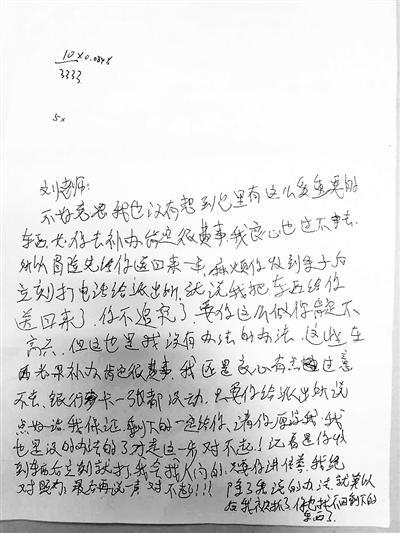 10×0.0848
3333
5×
刘老师:
不好意思我也没有想到包里有这么多重要的
东西 你去补办肯定很费事.我良心也过不去.
所以冒险先给你送回来一 麻烦你收到东子后
立刻打电话给派出所,就说我把东西给你
送回来了.你不追究了.要你这么做你肯定不
高兴.但这也是我没有办法的办法.这些东
西 如果补办肯也很费事,我还是良心有点过意
不去.银行卡一张都没动.只要你给派出所说
点好话,我保证剩下的一定给你.请你原谅我.我
也是没的办法的了才走这一步.对不起!记着是你收
到东西后立刻就打,我会找人问的.只要你讲信誉.我绝
对照办.最后再说一声对不起!!!
除了我说的办法,就算以
后我被抓了你也找不回剩下的
东西了.